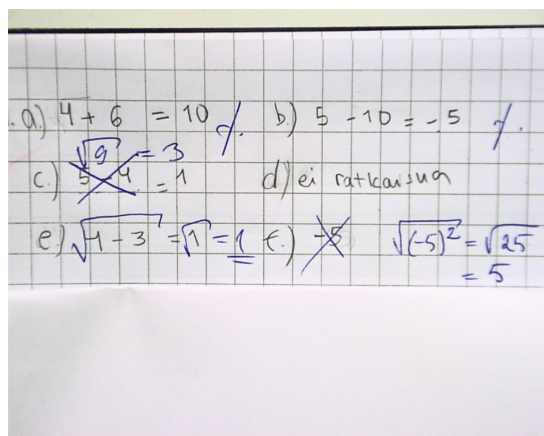 a.) 4 + 6 = 10 b.) 5 - 10 = -5
√9 = 3
c.) 5 - 4 = 1 d) ei ratkaisua
e.) √4 - 3 = √1 = 1 f.) -5 √(-5)² = √25
= 5